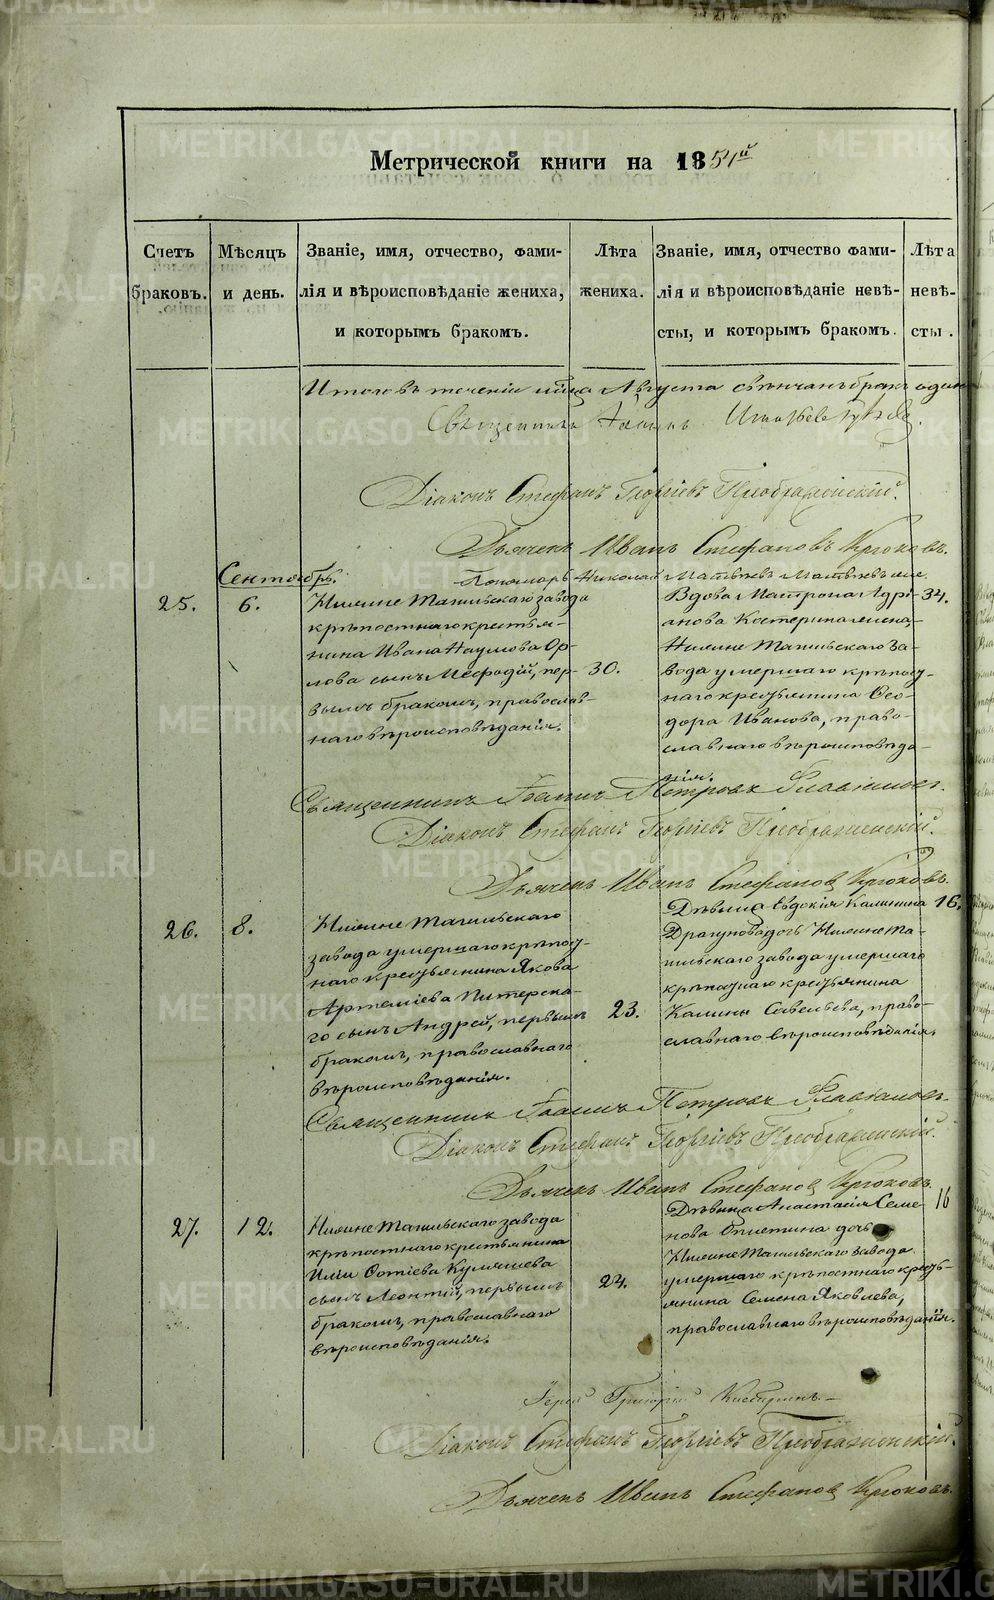 Метрической книги на 1854й
Счетъ браковъ.
Мѣсяцъ и день.
Званіе, имя, отчество, фами-
лія и вѣроисповѣданіе жениха,
и которымъ бракомъ.
Лѣта жениха.
Званіе, имя, отчество фами-
лія и вѣроисповѣданіе невѣ-
сты, и которымъ бракомъ.
Лѣта невѣ-
сты.
Итого въ теченіи мѣсяца Августа свѣнчанъ бракъ одинъ
Священникъ
Діаконъ Стефанъ Георгіевъ Преображенскій.
Дьячекъ Иванъ Стефановъ Крюковъ.
Пономарь Николай Матвѣевъ
Сентябрь.
25.
6.
Нижне Тагильскаго завода
крѣпостнаго крестья-
нина Ивана Наумова Ор-
лова сынъ Мефодій, пер-
вымъ бракомъ, православ-
наго вѣроисповѣданія.
30.
Вдова Матрона Адрі-
анова Костерина жена
Нижне Тагильскаго за-
вода умершаго крѣпост-
наго крестьянина Ѳео-
дора Иванова, право-
славнаго вѣроисповѣда-
нія.
34.
Священникъ Іоаннъ Петровъ Флавіановъ.
Діаконъ Стефанъ Георгіевъ Преображенскій.
Дьячекъ Иванъ Стефановъ Крюковъ.
26.
8.
Нижне Тагильскаго
завода умершаго крѣпост-
наго крестьянина Якова
Артеміева Питерска-
го сынъ Андрей, первымъ
бракомъ, православнаго
вѣроисповѣданія.
23.
Дѣвица Евдокія Калинина
Драгунова дочь Нижне Та-
гильскаго завода умершаго
крѣпостнаго крестьянина
Калины Савельева, право-
славнаго вѣроисповѣданія.
16.
Священникъ Іоаннъ Петровъ Флавіановъ.
Діаконъ Стефанъ Георгіевъ Преображенскій.
Дьячекъ Иванъ Стефановъ Крюковъ.
27.
12.
Нижне Тагильскаго завода
крѣпостнаго крестьянина
Иліи Фотіева Кулишева
сынъ Леонтій, первымъ
бракомъ, православнаго
вѣроисповѣданія.
24.
Дѣвица Анастасія Семе
нова дочь
Нижне Тагильскаго завода
умершаго крѣпостнаго кресть-
янина Семена Яковлева,
православнаго вѣроисповѣданія.
16
Іерей Григорій
Діаконъ Стефанъ Георгіевъ Преображенскій.
Дьячекъ Иванъ Стефановъ Крюковъ.
METRIKI.GASO-URAL.RU